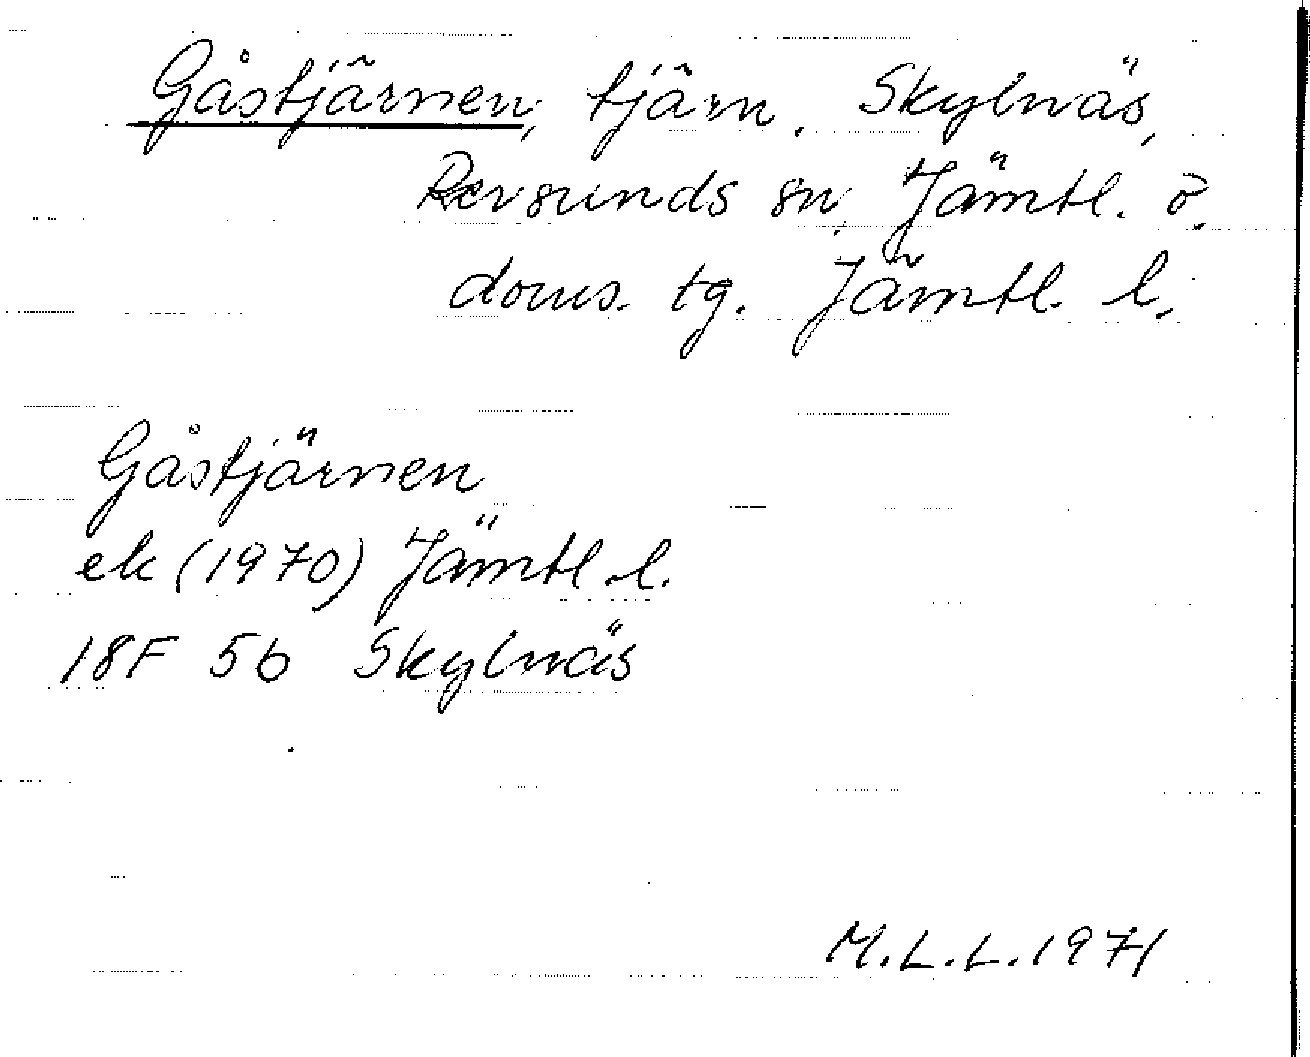 Gåstjärnen, tjärn, Skylnäs,
Revsunds sn, Jämtl. ö.
doms. tg. Jämtl. l.
Gåstjärnen
ek (1970) Jämtl. l.
18F 5b Skylnäs
M.L.L. 1971